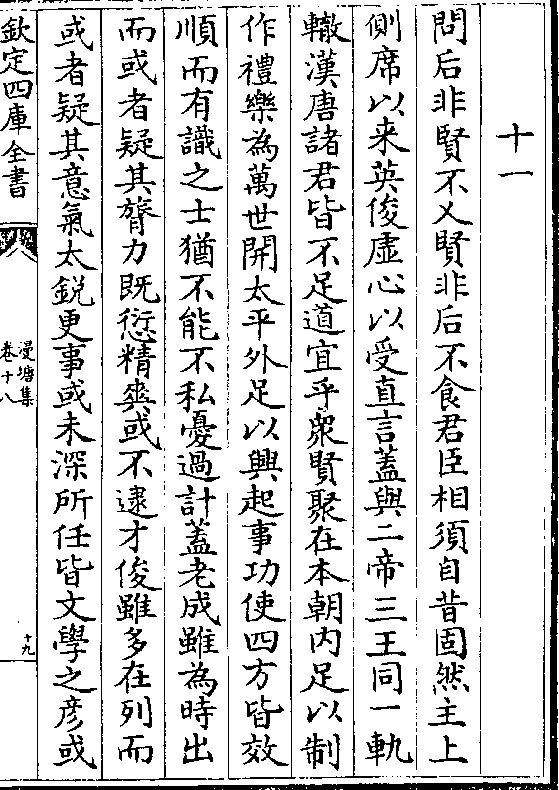 十一
問后非賢不乂賢非后不食君臣相須自昔固然主上
側席以来英俊虛心以受直言蓋與二帝三王同一軌
轍漢唐諸君皆不足道宜乎衆賢聚在本朝内足以制
作禮樂為萬世開太平外足以興起事功使四方皆效
順而有識之士猶不能不私憂過計蓋老成雖為時出
而或者疑其膂力既愆精爽或不逮才俊雖多在列而
或者疑其意氣太銳更事或未深所任皆文學之彦或
欽定四庫全書
漫塘集
卷十八
十九